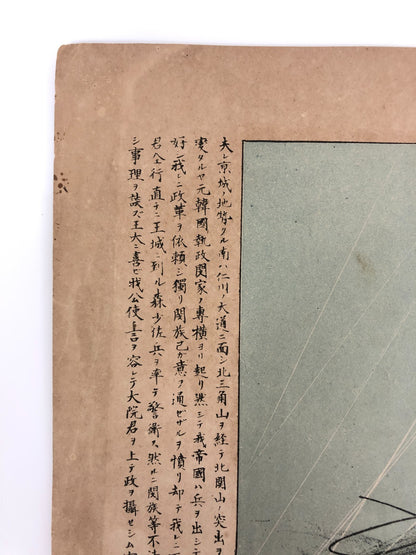 夫レ京城ノ地勢タル南ハ仁川ノ大道ニ面シ北三角山ヲ経テ北関山ノ突出ヲ
変タルヤ元韓國執政閔家ノ専横ヨリ起リ然シテ我帝國ハ兵ヲ出シテ
好ク我レニ政革ヲ依頼シ獨リ閔族己カ意ク通ゼザルヲ憤リ却テ我レニ
君仝行直チニ王城ニ到ル森少佐兵ヲ率テ警衛ス然ルニ閔族等不
シ事理ヲ談ズ王大ニ喜ビ我公使ノ言ヲ容レテ大院君ヲ上テ政ヲ攝セシム